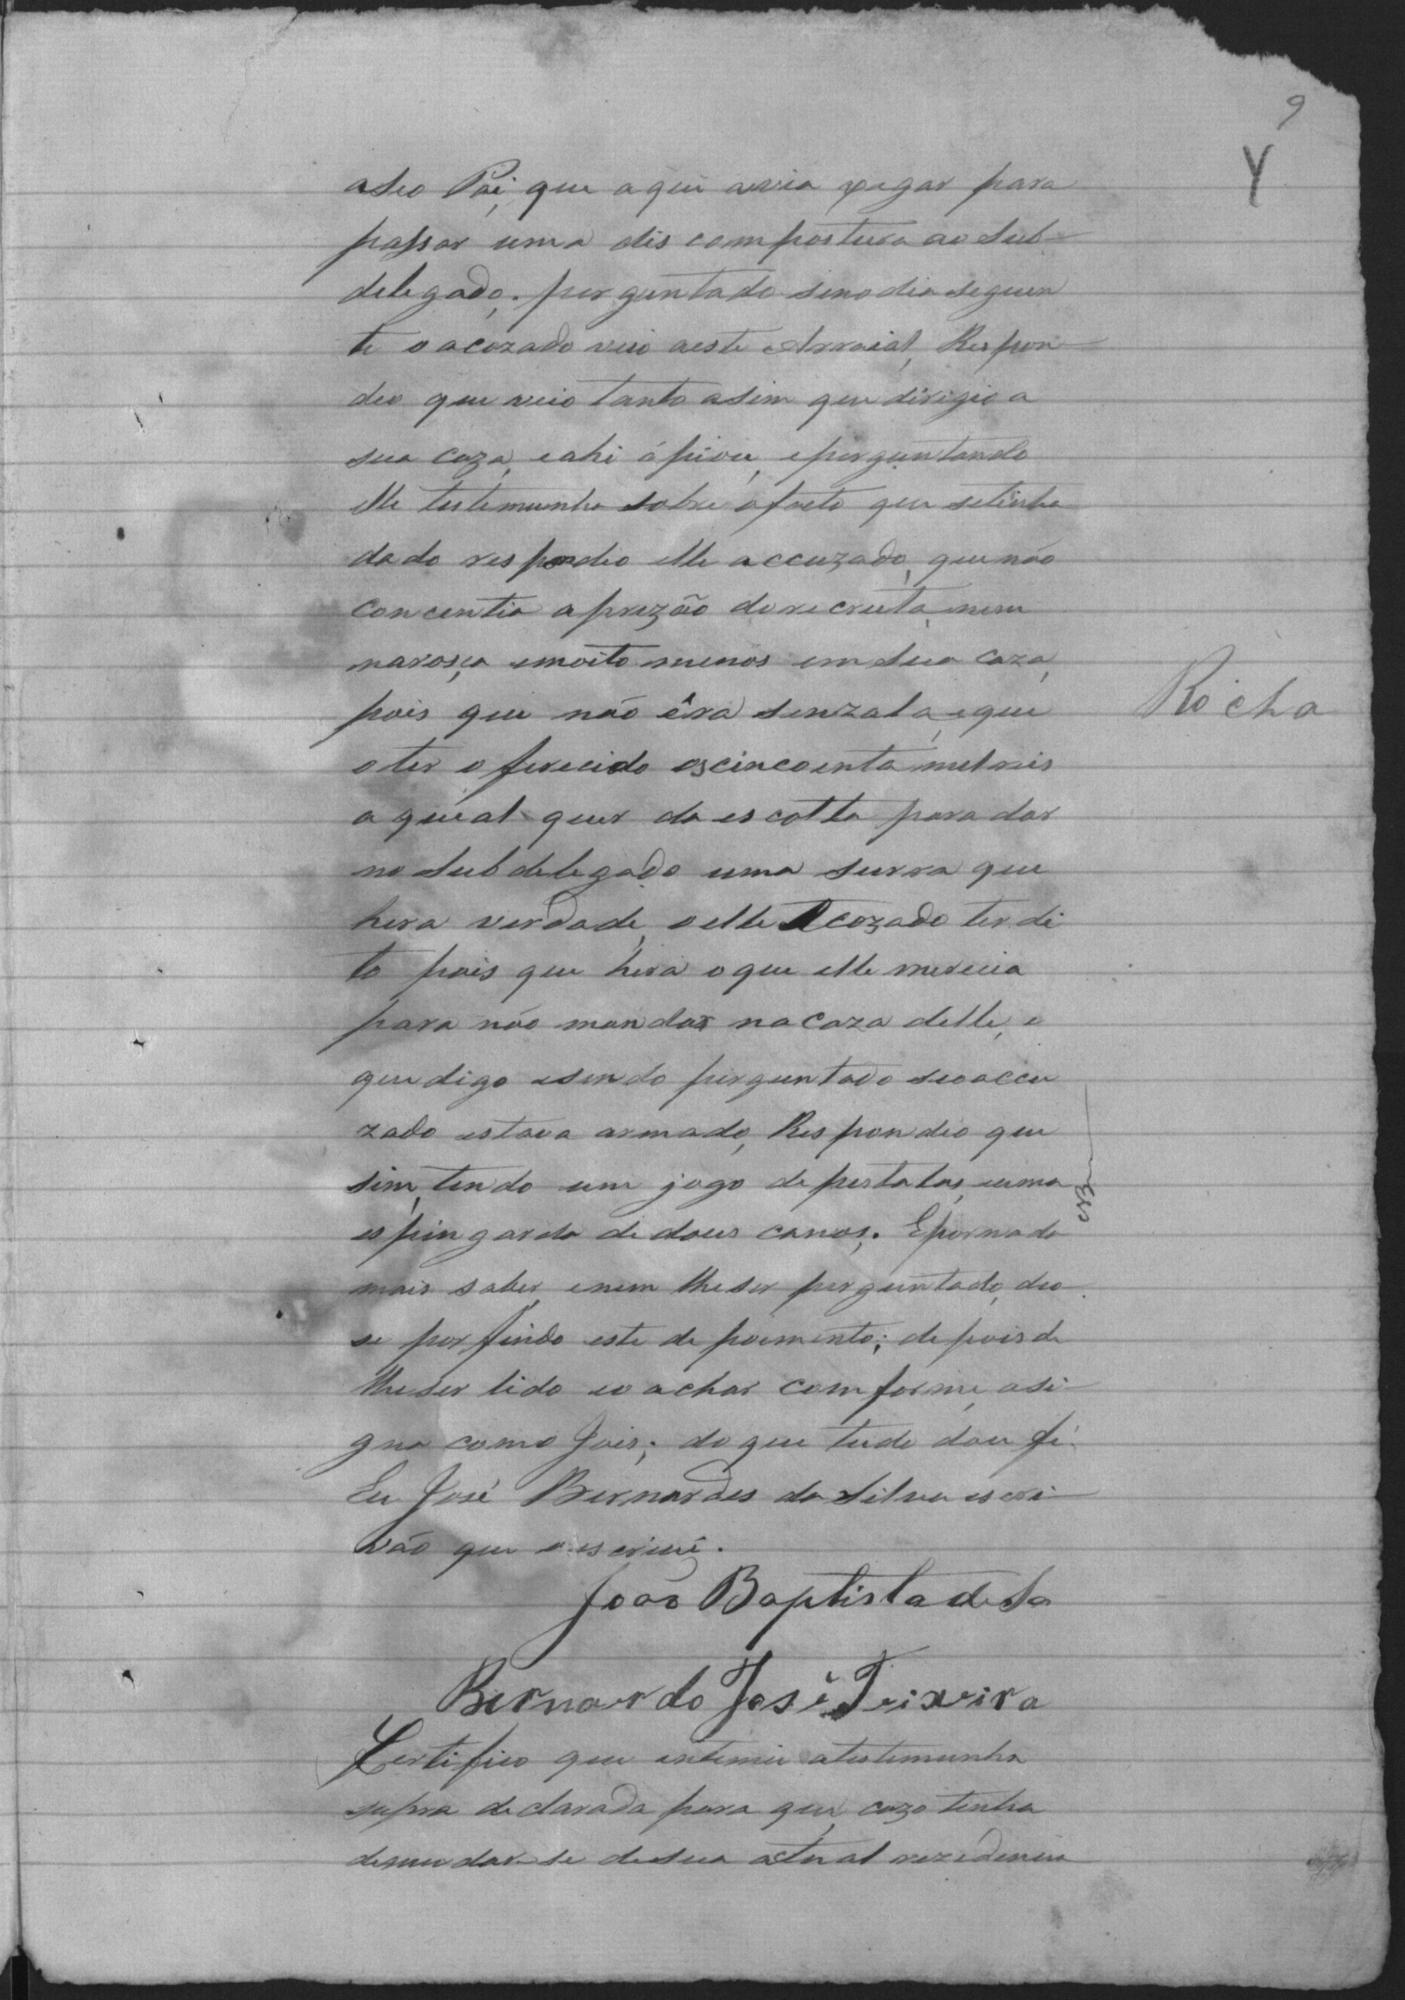 9
Y
aseo Pai, que aqui avia xegar para
passar uma discompostura ao Sub-
delegado. perguntado seno dia seguen
te o acozado veio a este Arraial, Respon-
deo que veio tanto asim que dirigio a
sua caza, e ahi ápiou, e perguntando
elle testemunha sobre o facto que setinha
dado respondeo elle accuzado, que não
concentia a prezão do recruta, nem
narosça, emoito menos em sua caza,
pois que não êra senzala, e que
Rocha
o ter oferecido os cincoenta milreis
a qualquer da escolta para dar
no Subdelegado uma surra que
hera verdade, o elle Acozado ter di
to pois que hera o que elle merecia
para não mandar na caza delle, e
que digo esendo perguntado seo accu
zado estava armado, Respondeo que
sim, tendo um jogo de pestolas, euma
espingarda de dous canos. E por nada
mais saber, enem lheser perguntado, deo
se por findo este depoimento; depois de
lheser lido eo achar comforme, asi-
gna como Jois; do que tudo dou fé.
Eu José Bernardes da Silva escri-
vão que o escrivi.
João Baptista de Sa
Bernardo José Teixeira
Certifico que entimei atestemunha
supra declarada para que, cazo tenha
demudar-se desua actual rezedencia